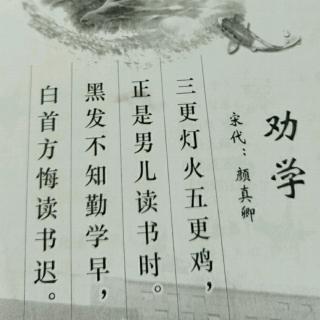 劝学
宋代：颜真卿
三更灯火五更鸡，
正是男儿读书时。
黑发不知勤学早，
白首方悔读书迟。